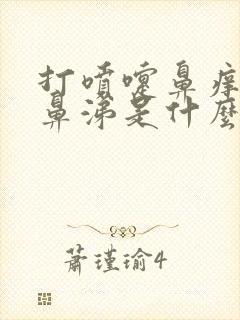 打噴嚏鼻癢
鼻涕是什麼
蕭瑾瑜4